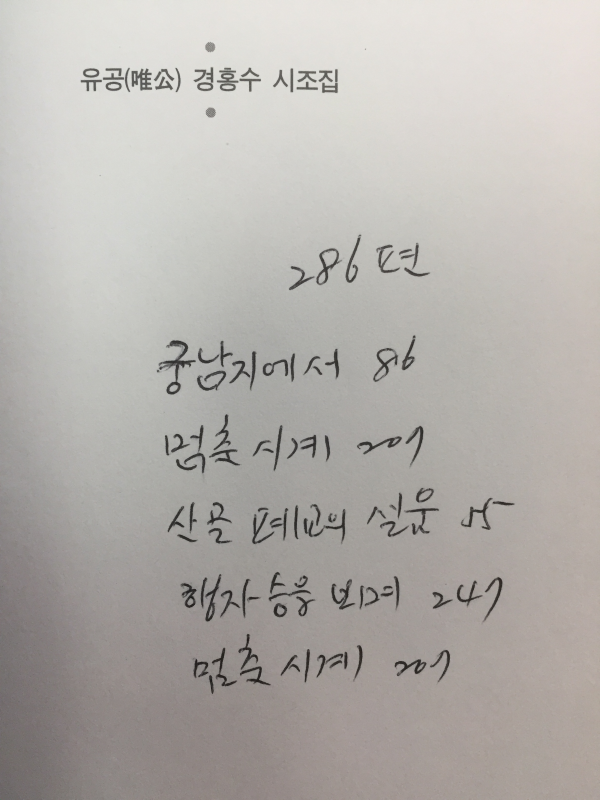 유공(唯公) 경홍수 시조집
286편
궁남지에서 86
멈춘 시계 207
산골 폐교의 설움 55
행자승응 뵈며 247
멈춘 시계 207